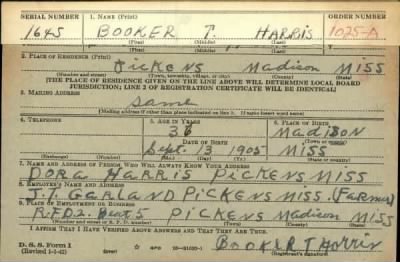 SERIAL NUMBER 1. NAME (Print) ORDER NUMBER
1645 BOOKER T. HARRIS 1025-A
(First) (Middle) (Last)
2. PLACE OF RESIDENCE (Print)
Pickens Madison Miss
(Number and street) (Town, township, village, or city) (County) (State)
[THE PLACE OF RESIDENCE GIVEN ON THE LINE ABOVE WILL DETERMINE LOCAL BOARD
JURISDICTION; LINE 2 OF REGISTRATION CERTIFICATE WILL BE IDENTICAL]
3. MAILING ADDRESS
Same
[Mailing address if other than place indicated on line 2. If same insert word same]
4. TELEPHONE 5. AGE IN YEARS 6. PLACE OF BIRTH
36 Madison
DATE OF BIRTH (Town or county)
Sept. 13 1905 Miss
(Exchange) (Number) (Mo.) (Day) (Yr.) (State or country)
7. NAME AND ADDRESS OF PERSON WHO WILL ALWAYS KNOW YOUR ADDRESS
DORA HARRIS PICKENS MISS
8. EMPLOYER'S NAME AND ADDRESS
J.T. GARLAND PICKENS MISS. (Farmer)
9. PLACE OF EMPLOYMENT OR BUSINESS
R.F.D.2. Beat 5 PICKENS Madison MISS
(Number and street or R. F. D. number) (Town) (County) (State)
I AFFIRM THAT I HAVE VERIFIED ABOVE ANSWERS AND THAT THEY ARE TRUE.
D. S. S. Form 1
(Revised 1-1-42) (over) GPO 16-21630-1 BOOKER T HARRIS
(Registrant's signature)